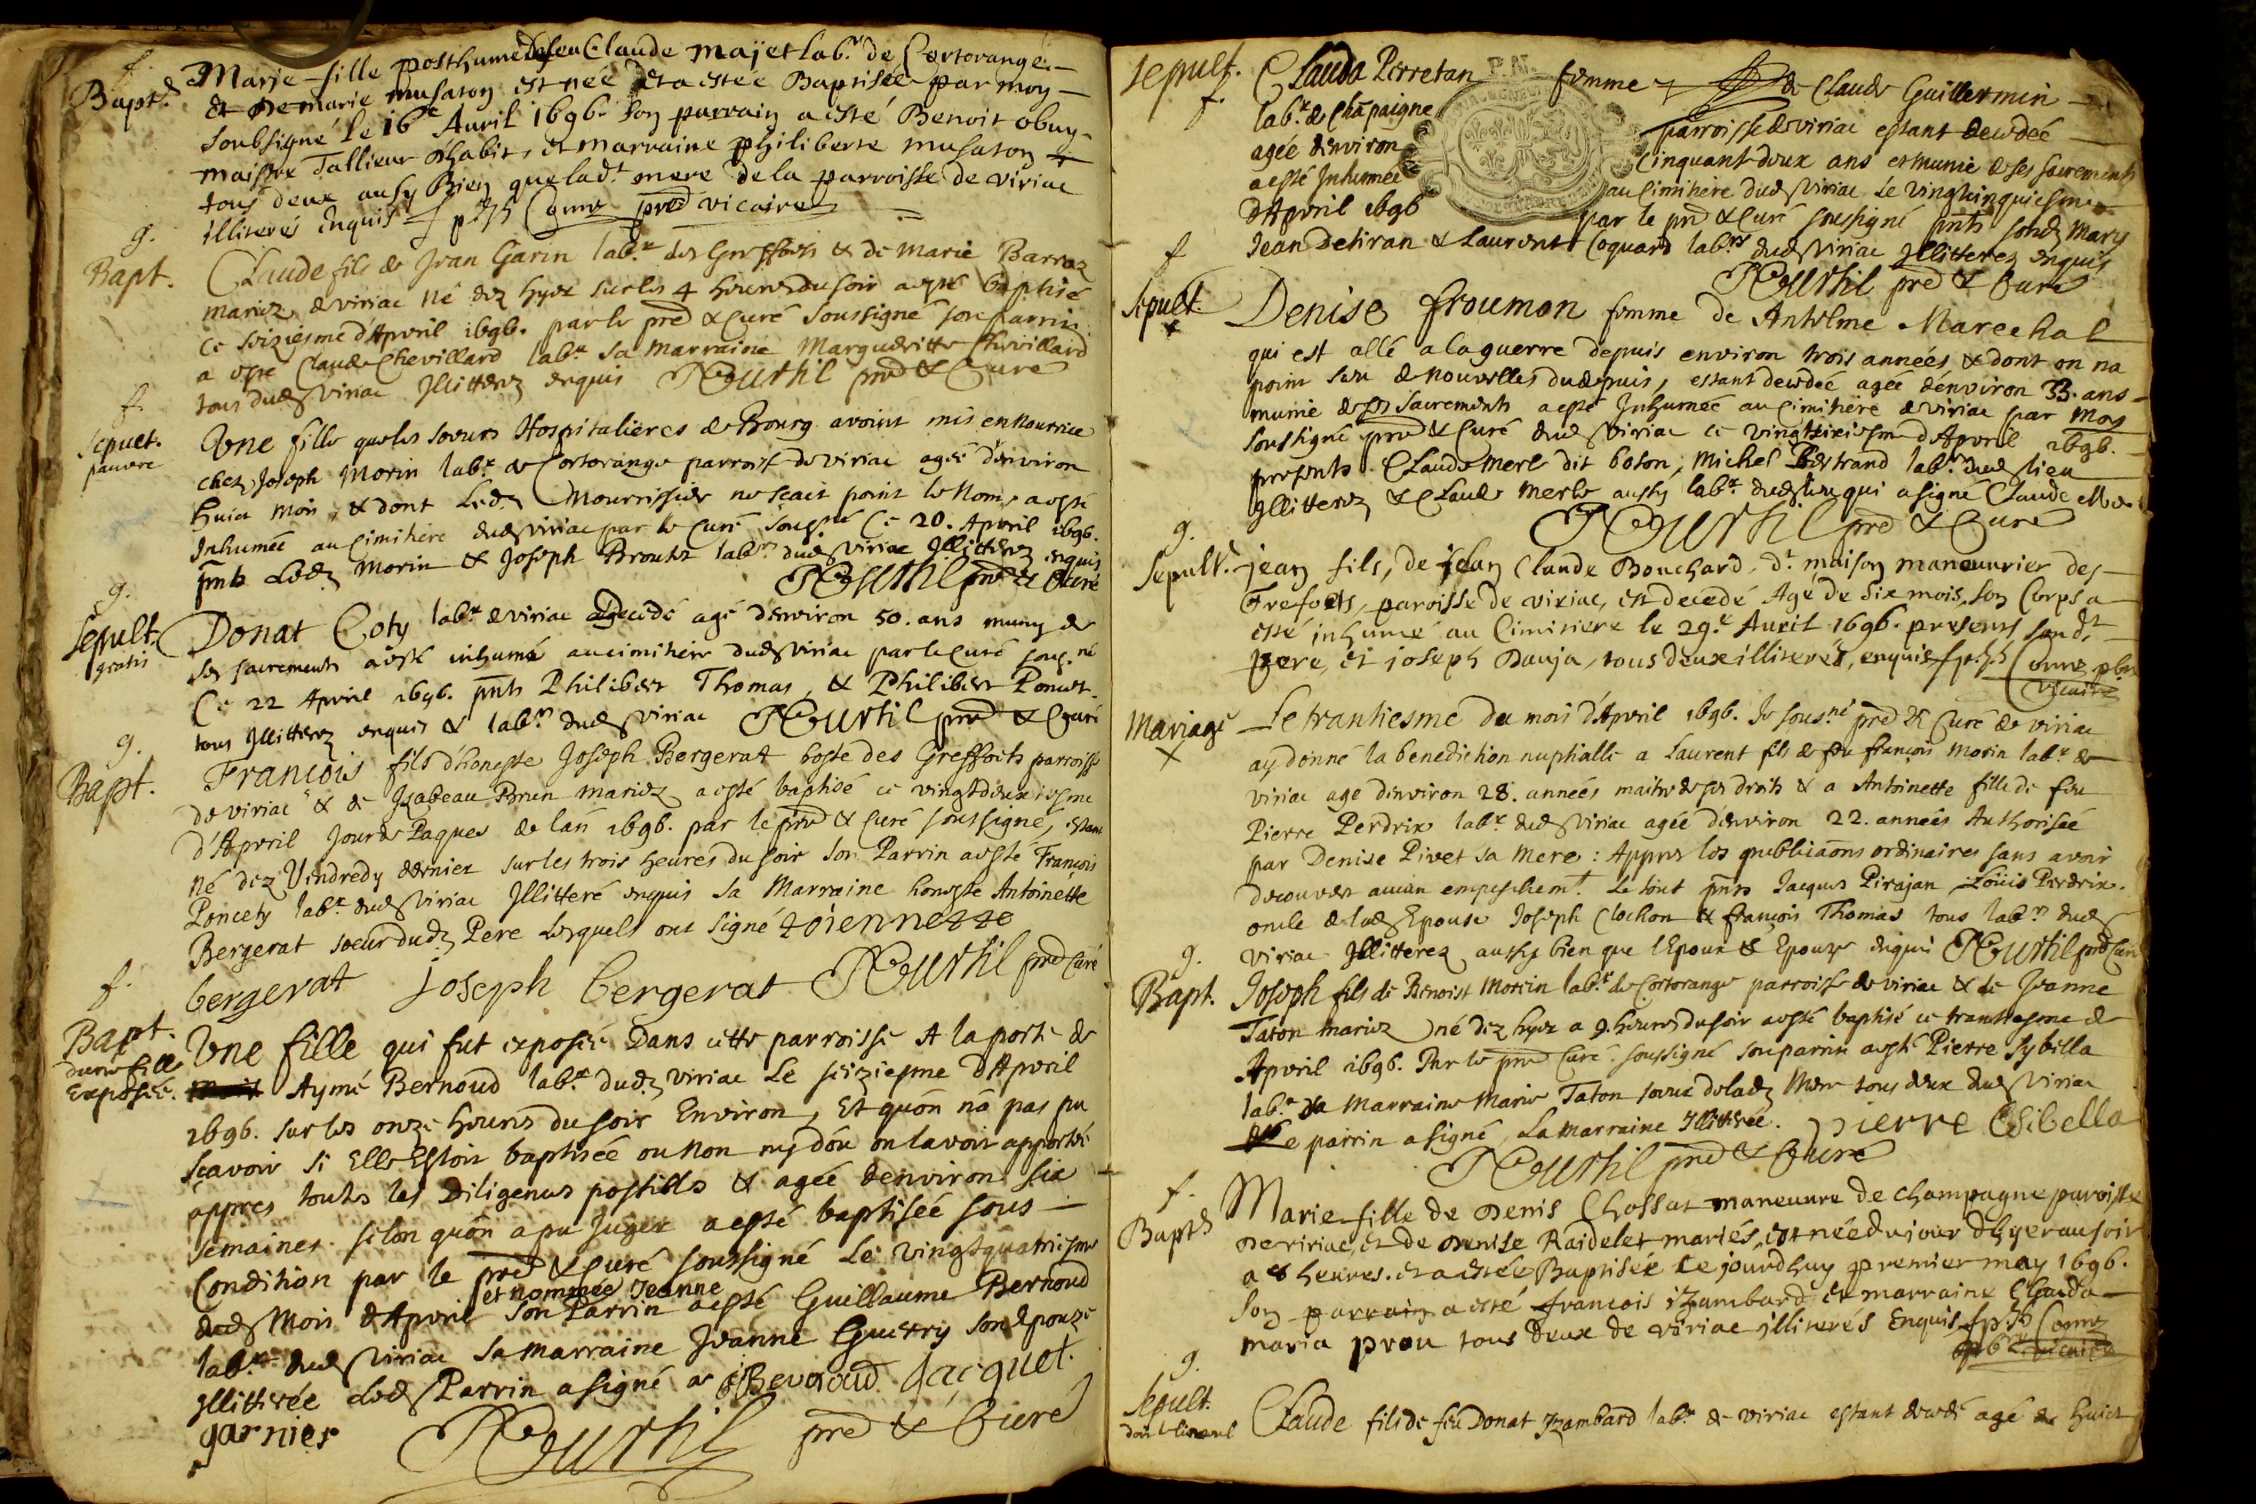 f.
Bapt.
Marie fille posthume de feu Claude Majet lab.r de Cortorange
et de marie musaton est née et a estée Baptisée par moy
soubsigné le 16e Auril 1696. son parrain a esté Benoit obuy
maistre Tallieur d'habit, et marraine philiberte musaton
tous deux ausy Bien que lad.t mere de la parroisse de viriac
illiterés Enquis vicaire
g.
Bapt.
Claude fils de Jean Garin lab.r des Greffets & de Marie Barraz
mariez de viriac né dez hyer sur les 4 heures du soir a esté baptisé
ce seiziesme d'Apvril 1696. par le pre & Curé soussigné son parrin
a esté Claude Chevillard lab.r sa marraine Margueritte Chevillard
tous dud viriac Illitterez enquis pre & Curé
f.
sepult.
pauvre
Une fille que les soeurs Hospitalieres de Bourg avoint mis en Nourrice
chez Joseph Morin lab.r de Cortorange parroisse de viriac agée d'environ
huict mois, & dont Led Nourrissier ne scait point le Nom, a esté
Inhumée au Cimitiere dud viriac par le Curé sousné Ce 20. Apvril 1696.
pnts Led Morin & Joseph Brouter lab.rs dud viriac Illitterez enquis
pre & Curé
g.
Sepult.
gratis
Donat Coty lab.r de viriac decedé agé d'environ 50. ans muny de
ses sacrements a esté inhumé au cimitiere dud viriac par le Curé sous.né
Ce 22 Apvril 1696. pnts Philibert Thomas, & Philibert Poncet
tous Illitterez enquis & lab.rs dud viriac pre & Curé
g.
Bapt.
Francois fils d'honeste Joseph Bergerat hoste des Greffets parroisse
de viriac & de Izabeau Brun mariez a esté baptisé ce vingtdeuxiesme
d'Apvril Jour de Paques de l'an 1696. par le pre & Curé soussigné, estant
né dez Vendredy dernier sur les trois heures du soir son Parrin a esté François
Poncety lab.r dud viriac Illitteré enquis sa Marraine honeste Antoinette
Bergerat soeur dud Pere Lesquels ont signé toiennette
bergerat joseph bergerat pre Curé
f.
Bapt.
d'une fille
Exposée.
Une fille qui fut exposée Dans cette parroisse A la porte de
Aymé Bernoud lab.r dud viriac Le seiziesme d'Apvril
1696. sur les onze heures du soir Environ, Et qu'on n'a pas pu
scavoir si Elle Estoit baptisée ou Non ny d'ou on l'avoit apportée
appres toutes les Diligences possibles & agée d'environ six
semaines selon qu'on a pu Juger a esté baptisée sous
Condition par le pre & Curé soussigné Le vingtquatriesme
et nommée Jeanne
dud Mois d'Apvril son Parrin a esté Guillaume Bernoud
lab.r dud viriac sa marraine Jeanne Guerry son Epouze
Illitterée Led Parrin a signé Jacquet
garnier
pre & Curé
sepult.
f.
Clauda Perretan femme de Claude Guillermin
lab.r de Chãpaigne parroisse de viriac estant decedée
agée d'environ cinquant deux ans et munie de ses sacrements
a esté Inhumée au Cimitiere dud viriac Le vingtcinquiesme
d'Apvril 1696 par le pre & Curé soussigné pnts sond Mary
Jean Detiran & Laurent Coquard lab.rs dud viriac Illitterez enquis
pre & Curé
f
Sepult.
Denise froumon femme de Antelme Marechal
qui est allé a la guerre depuis environ trois années & dont on na
point sceu de nouvelles du depuis, estant decedeé ageé d'environ 33. ans
munie de ses sacrements a esté Inhumée au Cimitiere de viriac par Moy
soussigné pre & Curé dud viriac ce vingtsixiesme d'Apvril 1696.
presents Claude Merle dit boton, Michel Bertrand lab.rs dud lieu
Illitterez, & Claude Merle aussy lab.r dud lieu qui a signé Claude
pre & Curé
g.
Sepult.
jean fils, de jean Claude Bouchard, d.t maison maneuurier des
Trefoets, paroisse de viriac, est decedé Agé de six mois, son Corps a
esté inhumé au Cimitiere le 29.e Auril 1696. presents sond.t
pere, et joseph Dauja, tous deux illiterés, enquis
vicaire
Mariage
Le trantiesme du mois d'Apvril 1696. Je sous.né pre & Curé de viriac
ay donné la benediction nuptialle a Laurent fils de feu François Morin lab.r de
viriac agé d'environ 28. années maitre de ses droits & a Antoinette fille de feu
Pierre Perdrix lab.r dud viriac agée d'environ 22. années Authorisée
par Denise Pivet sa Mere: Appres les publicaõns ordinaires sans avoir
decouvert aucun empeschem.t Le tout pnts Jacques Pirajan Louis Perdrix
oncle de lad Epouse Joseph Clochon & françois Thomas tous lab.rs dud
viriac Illitterez aussy bien que l'Epoux & Epouze enquis pre Curé
g.
Bapt.
Joseph fils de Benoist Morin lab.r de Cortorange parroisse de viriac & de Jeanne
Taton mariez né dez hyer a 9. heures du soir a esté baptisé ce trantiesme de
Apvril 1696. Par le pre Curé soussigné son parrin a esté Pierre Sybilla
lab.r sa Marraine Marie Taton soeur de lad Mere tous deux dud viriac
Le parrin a signé, La marraine Illitterée. pierre Cibella
pre & Curé
f.
Bapt
Marie fille de Denis Chossat maneuure de Champagne paroisse
de viriac, et de Denise Raidelet mariés, est née du jour d'hyer au soir
a 8 heures. et a estée Baptisée ce jourd'huy premier may 1696.
son parrain a esté francois izambard et marraine Clauda
maria prou tous deux de viriac illiterés Enquis
vicaire
g.
Sepult.
Claude fils de feu Donat Izambard lab.r de viriac estant decedé agé de huict